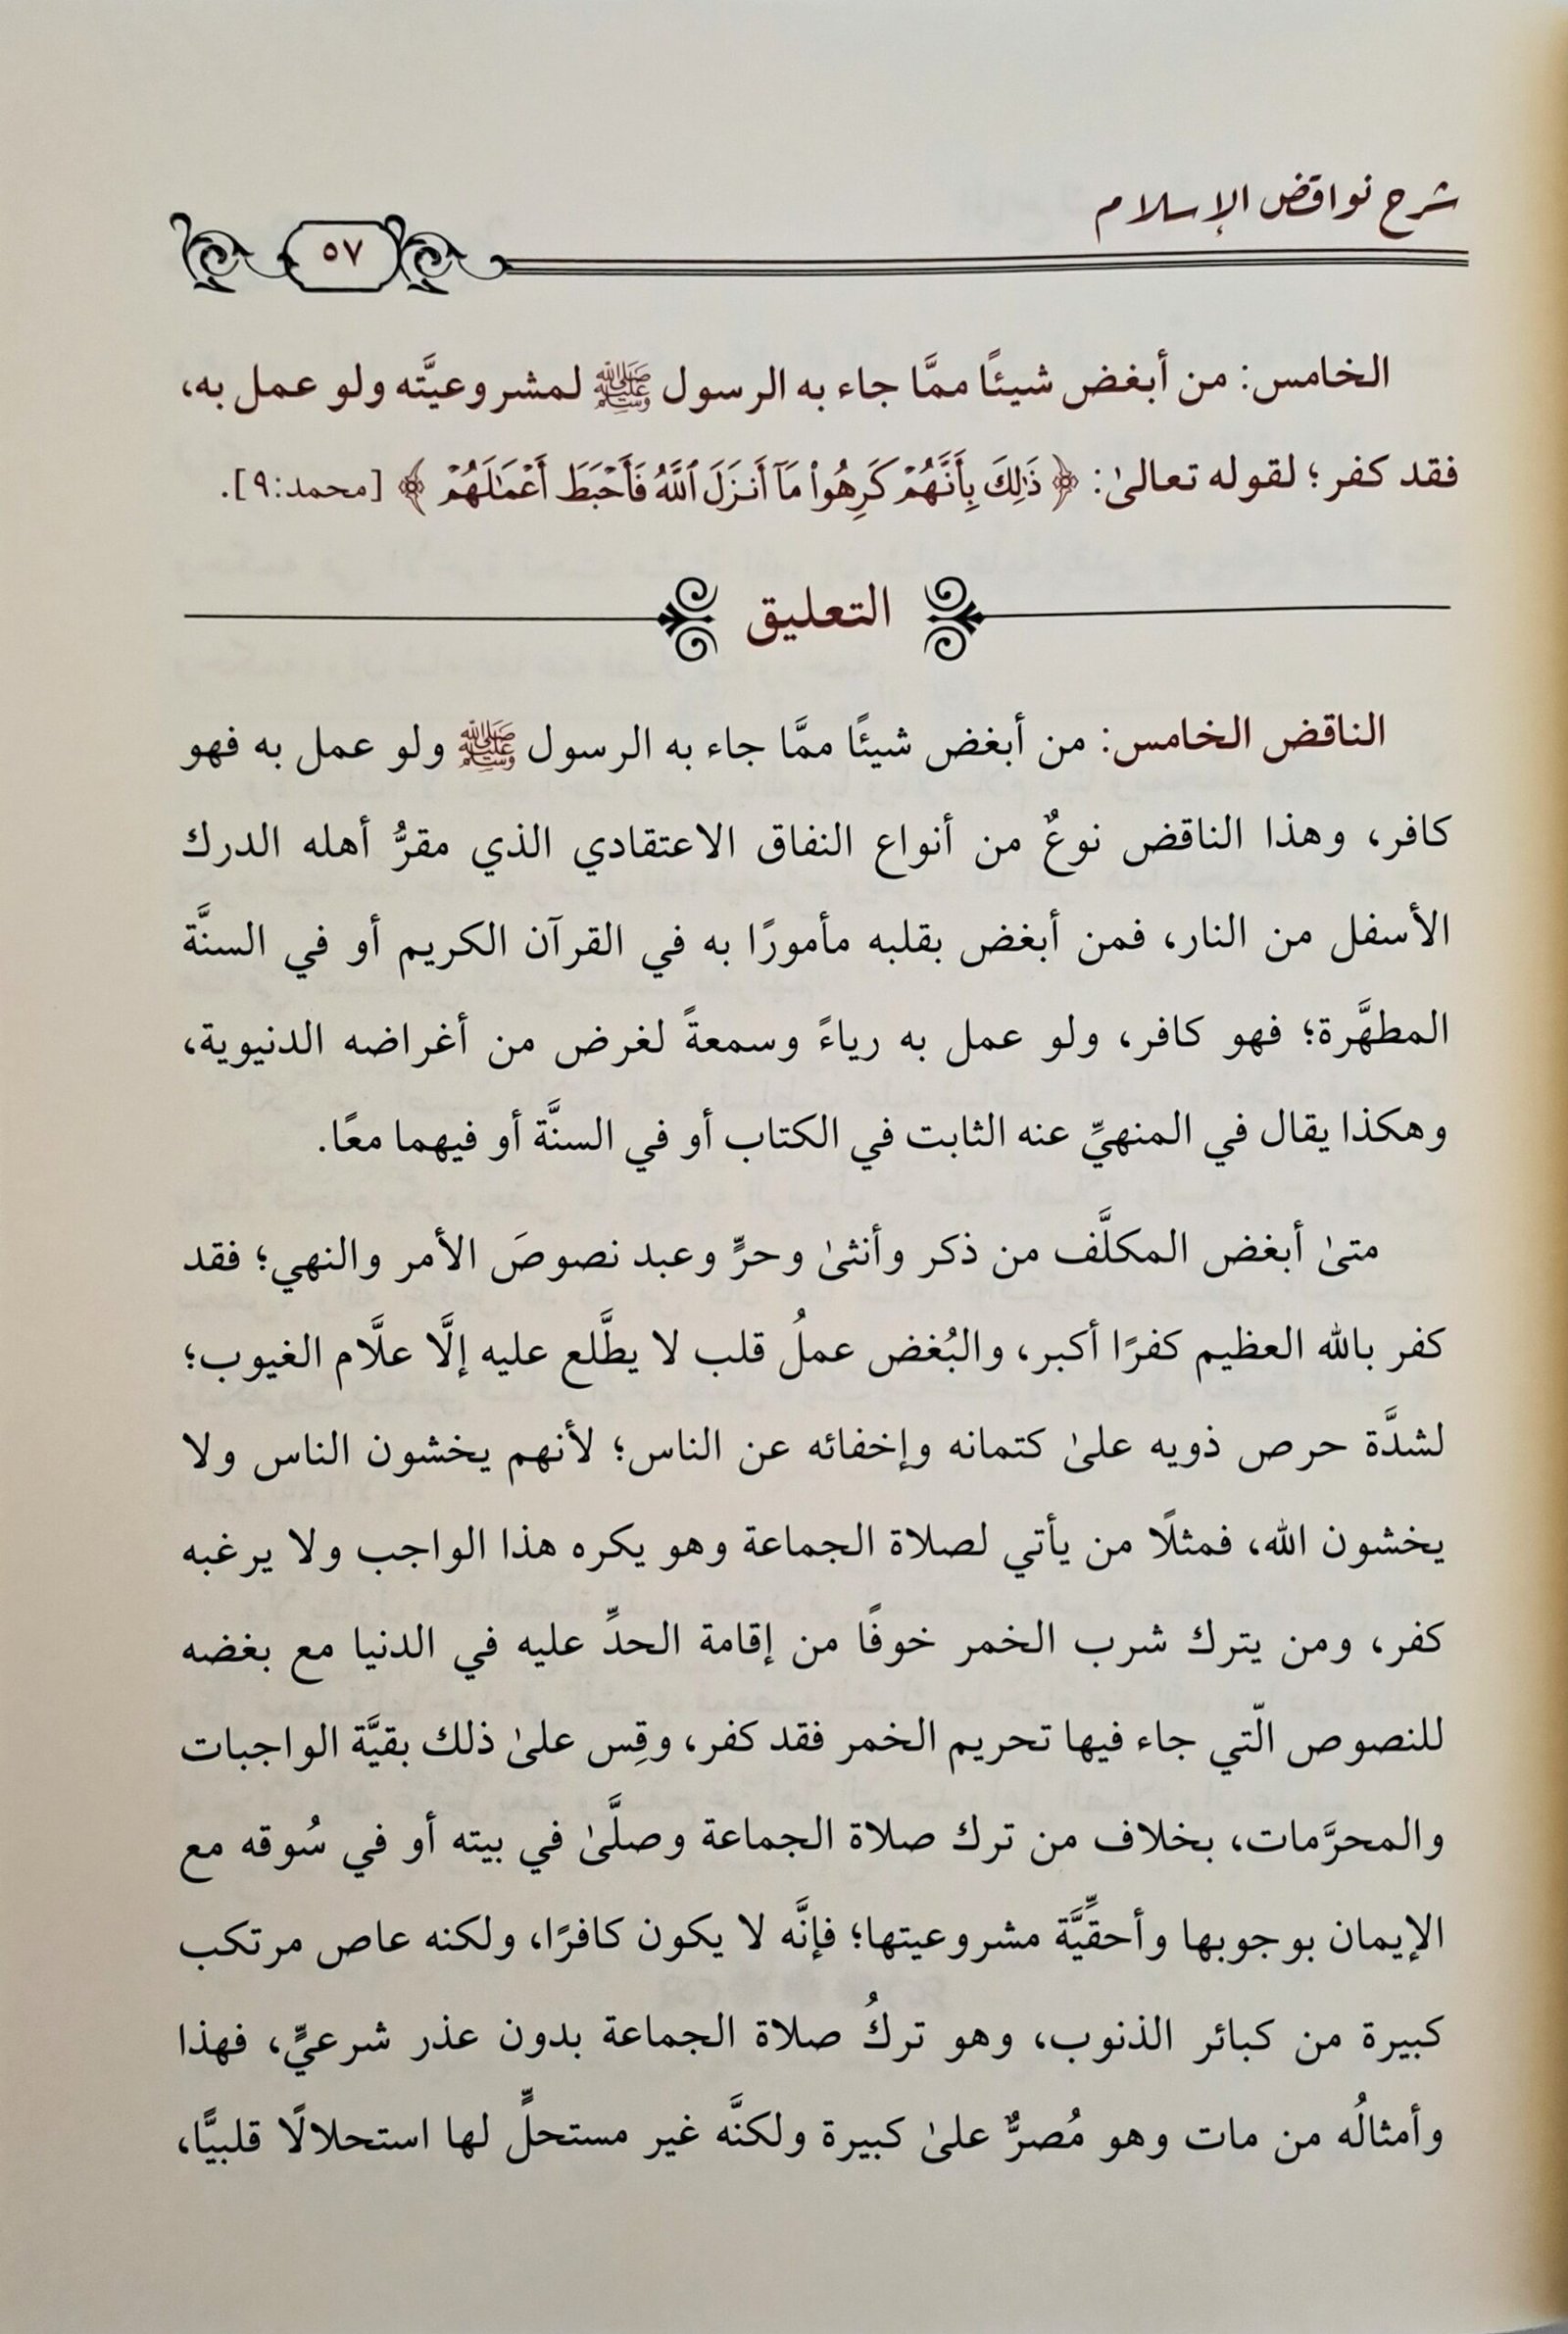 شرح نواقض الإسلام
٥٧
الخامس: من أبغض شيئًا ممَّا جاء به الرسول ﷺ لمشروعيَّته ولو عمل به،
فقد كفر؛ لقوله تعالىٰ: ﴿ ذَٰلِكَ بِأَنَّهُمْ كَرِهُوا۟ مَآ أَنزَلَ ٱللَّهُ فَأَحْبَطَ أَعْمَـٰلَهُمْ ﴾ [محمد:٩].
التعليق
الناقض الخامس: من أبغض شيئًا ممَّا جاء به الرسول ﷺ ولو عمل به فهو
كافر، وهذا الناقض نوعٌ من أنواع النفاق الاعتقادي الذي مقرُّ أهله الدرك
الأسفل من النار، فمن أبغض بقلبه مأمورًا به في القرآن الكريم أو في السنَّة
المطهَّرة؛ فهو كافر، ولو عمل به رياءً وسمعةً لغرض من أغراضه الدنيوية،
وهكذا يقال في المنهيِّ عنه الثابت في الكتاب أو في السنَّة أو فيهما معًا.
متىٰ أبغض المكلَّف من ذكر وأنثىٰ وحرٍّ وعبد نصوصَ الأمر والنهي؛ فقد
كفر بالله العظيم كفرًا أكبر، والبُغض عملُ قلب لا يطَّلع عليه إلَّا علَّام الغيوب؛
لشدَّة حرص ذويه علىٰ كتمانه وإخفائه عن الناس؛ لأنهم يخشون الناس ولا
يخشون الله، فمثلًا من يأتي لصلاة الجماعة وهو يكره هذا الواجب ولا يرغبه
كفر، ومن يترك شرب الخمر خوفًا من إقامة الحدِّ عليه في الدنيا مع بغضه
للنصوص الّتي جاء فيها تحريم الخمر فقد كفر، وقِس علىٰ ذلك بقيَّة الواجبات
والمحرَّمات، بخلاف من ترك صلاة الجماعة وصلَّىٰ في بيته أو في سُوقه مع
الإيمان بوجوبها وأحقِّيَّة مشروعيتها؛ فإنَّه لا يكون كافرًا، ولكنه عاص مرتكب
كبيرة من كبائر الذنوب، وهو تركُ صلاة الجماعة بدون عذر شرعيٍّ، فهذا
وأمثالُه من مات وهو مُصرٌّ علىٰ كبيرة ولكنَّه غير مستحلٍّ لها استحلالًا قلبيًّا،